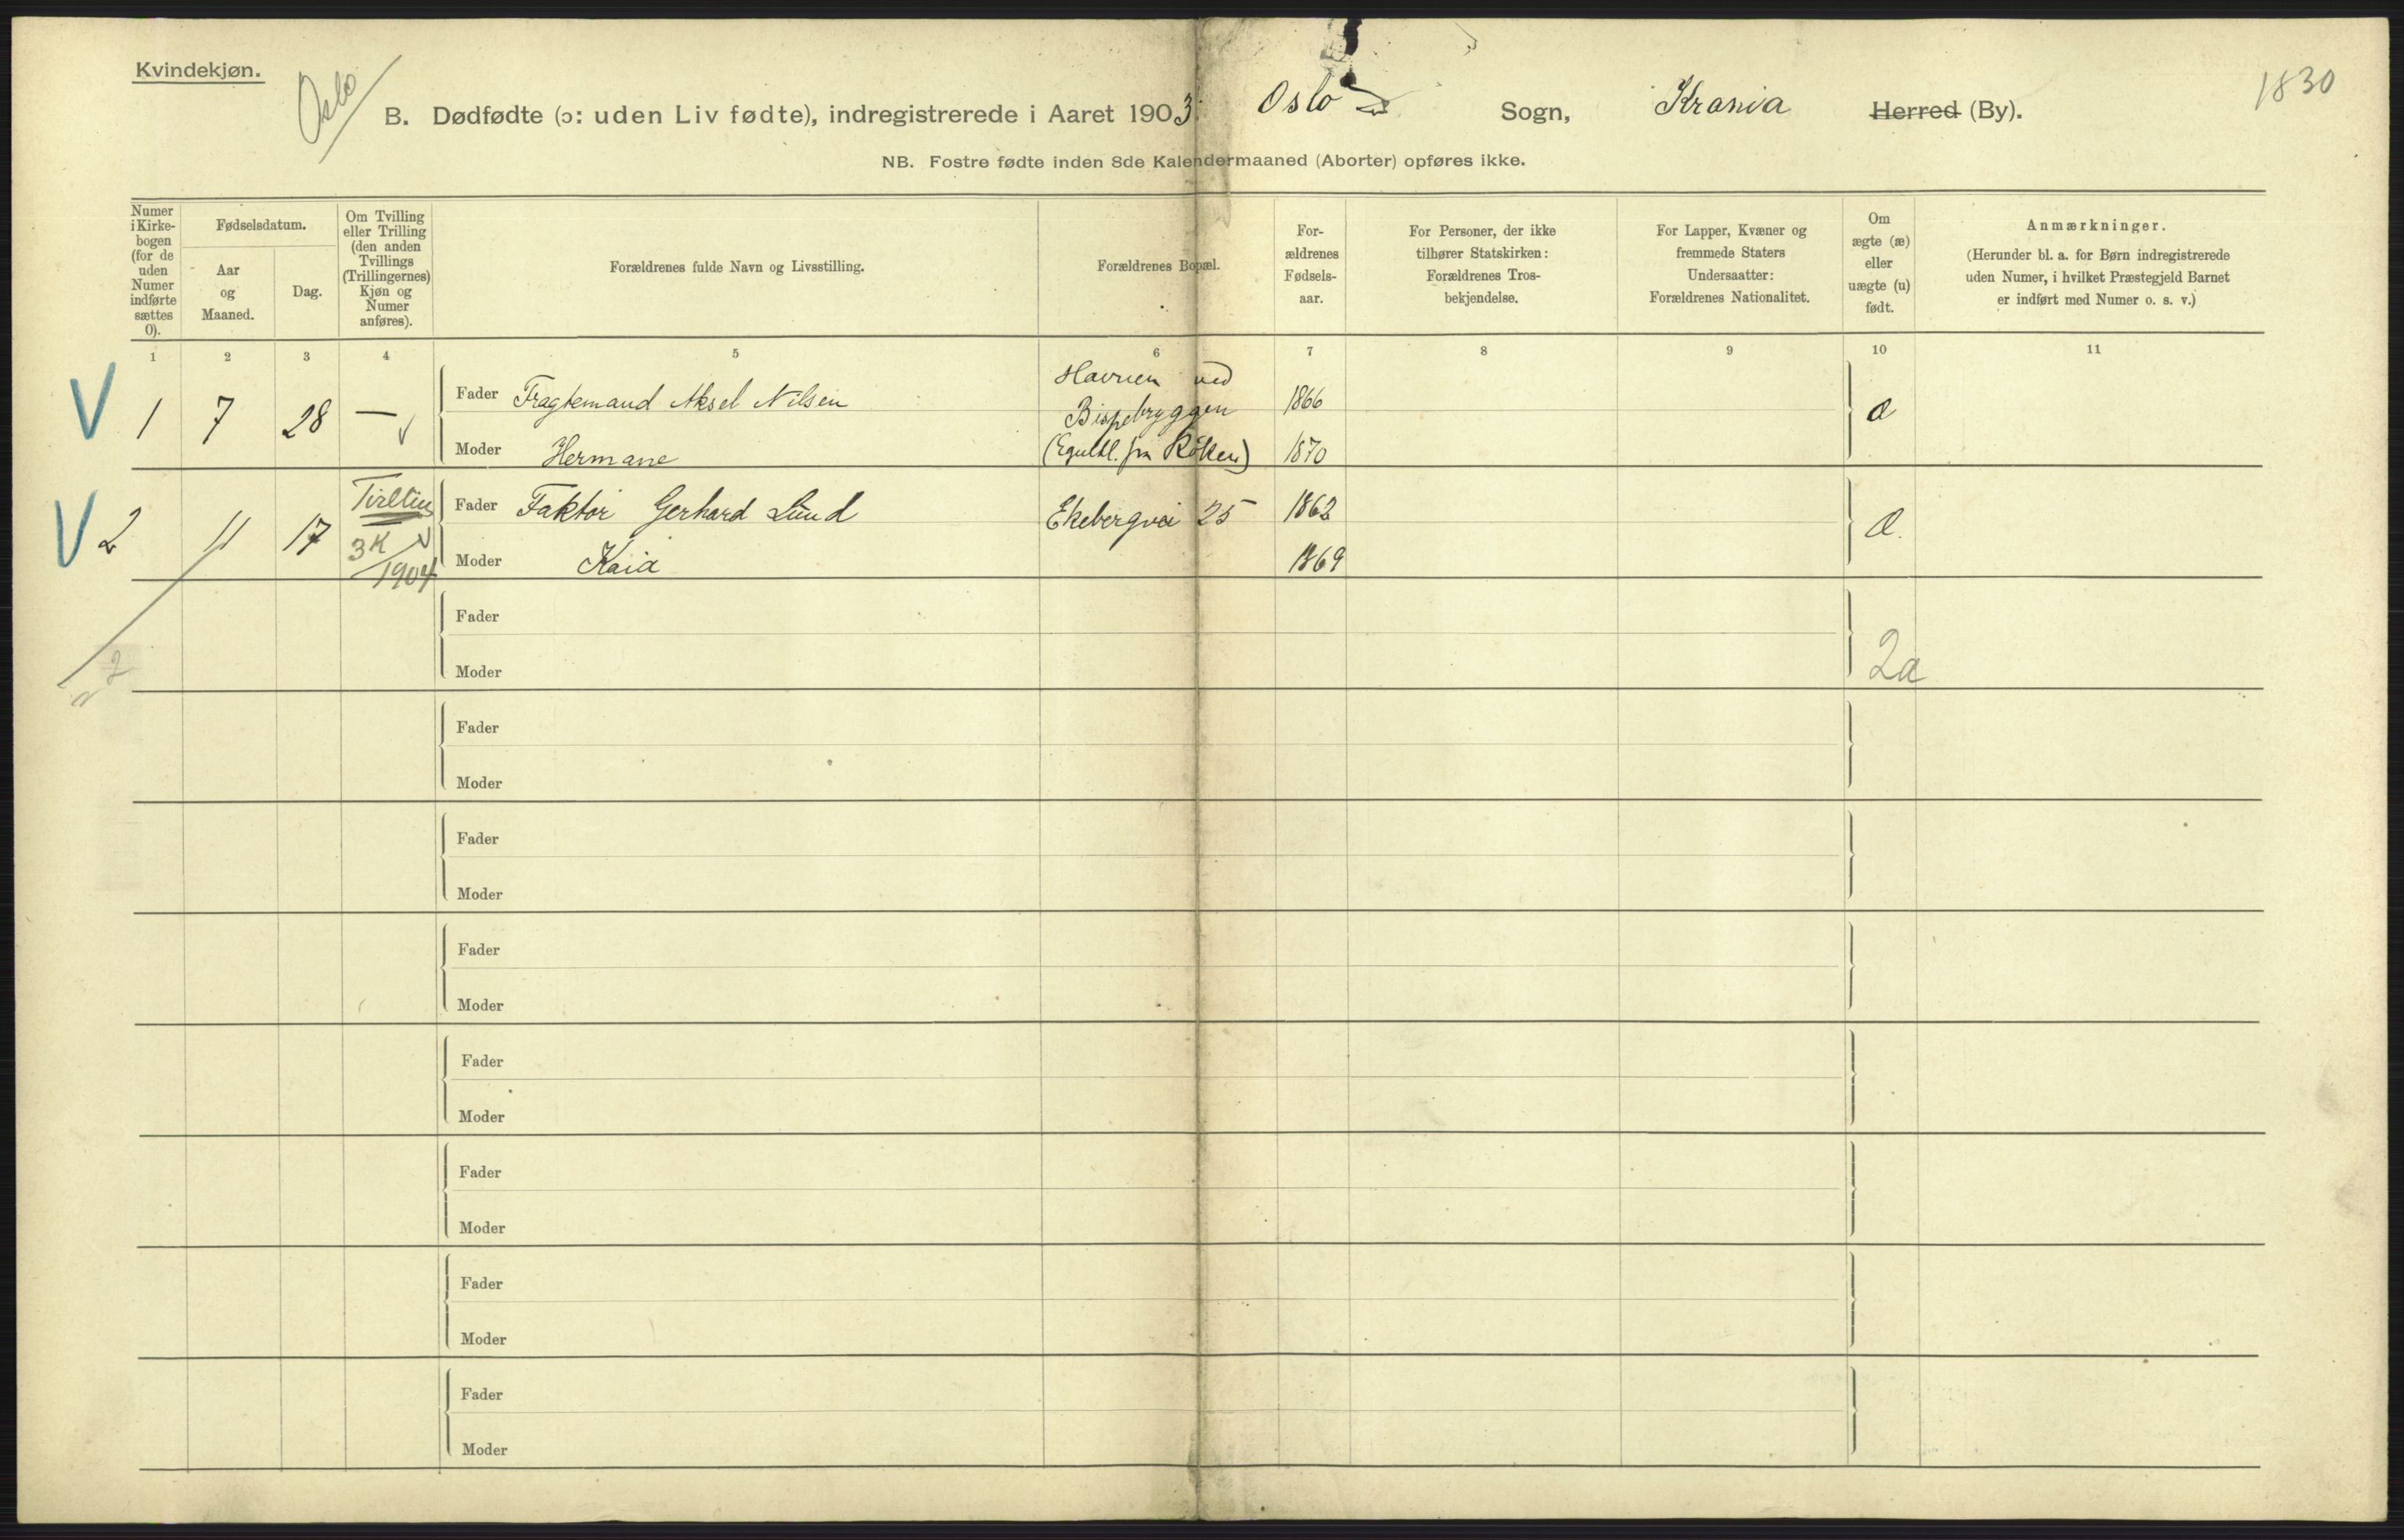 Kvindekjøn.
Oslo
1830
B. Dødfødte (ɔ: uden Liv fødte), indregistrerede i Aaret 1903. Oslo Sogn, Krania Herred (By).
NB. Fostre fødte inden 8de Kalendermaaned (Aborter) opføres ikke.
Numer
i Kirke-
bogen
(for de
uden
Numer
indførte
sættes
0).
Fødselsdatum.
Aar
og
Maaned.
Dag.
Om Tvilling
eller Trilling
(den anden
Tvillings
(Trillingernes)
Kjøn og
Numer
anføres).
Forældrenes fulde Navn og Livsstilling.
Forældrenes Bopæl.
For-
ældrenes
Fødsels-
aar.
For Personer, der ikke
tilhører Statskirken:
Forældrenes Tros-
bekjendelse.
For Lapper, Kvæner og
fremmede Staters
Undersaatter:
Forældrenes Nationalitet.
Om
ægte (æ)
eller
uægte (u)
født.
Anmærkninger.
(Herunder bl. a. for Børn indregistrerede
uden Numer, i hvilket Præstegjeld Barnet
er indført med Numer o. s. v.)
1 2 3 4 5 6 7 8 9 10 11
V 1 7 28 — Fader Fragtemand Aksel Nilsen Havnen ved Bispebryggen 1866 æ
Moder Hermane fra Röken) 1870
V 2 11 17 Fader Faktor Gerhard Lund Ekebergvei 25 1862 æ.
3K
1904
Moder Kaia 1869
Fader
Moder
2
2æ
Fader
Moder
Fader
Moder
Fader
Moder
Fader
Moder
Fader
Moder
Fader
Moder
Fader
Moder